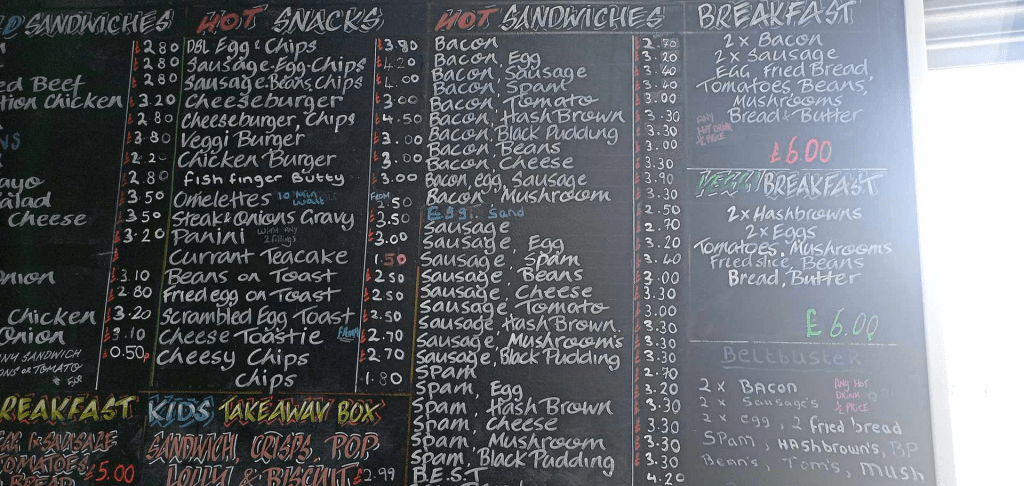 SANDWICHES
£2.80
£2.80
ed Beef £2.80
tion Chicken £3.20
£2.80
NS £3.80
£2.20
ayo £2.80
alad £3.50
Cheese £3.50
£3.20
onion £3.10
£2.80
Chicken £3.20
Onion £3.10
NY SANDWICH £0.50p
ONS OR TOMATO
HOT SNACKS
DBL Egg & Chips £3.80
Sausage.Egg.Chips £4.20
Sausage.Beans.Chips £4.00
Cheeseburger £3.00
Cheeseburger, Chips £4.50
Veggi Burger £3.00
Chicken Burger £3.00
Fish finger Butty £3.00
Omelettes 10 Min Wait FROM 2.50
Steak & Onions Gravy £3.50
Panini WITH ANY 2 Fillings £3.00
Currant Teacake 1.50
Beans on Toast £2.50
Fried egg on Toast £2.50
Scrambled Egg Toast £2.50
Cheese Toastie FROM £2.70
Cheesy Chips £2.70
Chips 1.80
HOT SANDWICHES
Bacon £2.70
Bacon, Egg £3.20
Bacon, Sausage £3.40
Bacon, Spam £3.40
Bacon, Tomato £3.00
Bacon, Hash Brown £3.30
Bacon, Black Pudding £3.30
Bacon, Beans £3.00
Bacon, Cheese £3.30
Bacon, egg, Sausage £3.90
Bacon, Mushroom £3.30
Egg. Sand £2.50
Sausage £2.70
Sausage, Egg £3.20
Sausage, Spam £3.40
Sausage, Beans £3.00
Sausage, Cheese £3.30
Sausage, Tomato £3.00
Sausage, Hash Brown. £3.30
Sausage, Mushroom's £3.30
Sausage, Black Pudding £3.30
Spam £2.70
Spam, Egg £3.20
Spam, Hash Brown £3.30
Spam, Cheese £3.30
Spam, Mushroom £3.30
Spam, Black Pudding £3.30
B.E.S.T £4.20
BREAKFAST
2 x Bacon
2 x Sausage
Egg, Fried Bread,
Tomatoes, Beans,
Mushrooms
Bread & Butter
ANY
HOT DRINK
½ PRICE
£6.00
VEGGI BREAKFAST
2 x Hashbrowns
2 x Eggs
Tomatoes, Mushrooms
Fried slice, Beans
Bread, Butter
£6.00
Beltbuster
2 x Bacon
2 x Sausage's
2 x egg, 2 fried bread
Spam, Hashbrown's, BP
Bean's, Tom's, mush
ANY HOT
DRINK
½ PRICE
REAKFAST
EGG SAUSAGE
TOMATOES
BREAD £5.00
KIDS TAKEAWAY BOX
SANDWICH, CRISPS, POP
LOLLY & BISCUIT £2.99